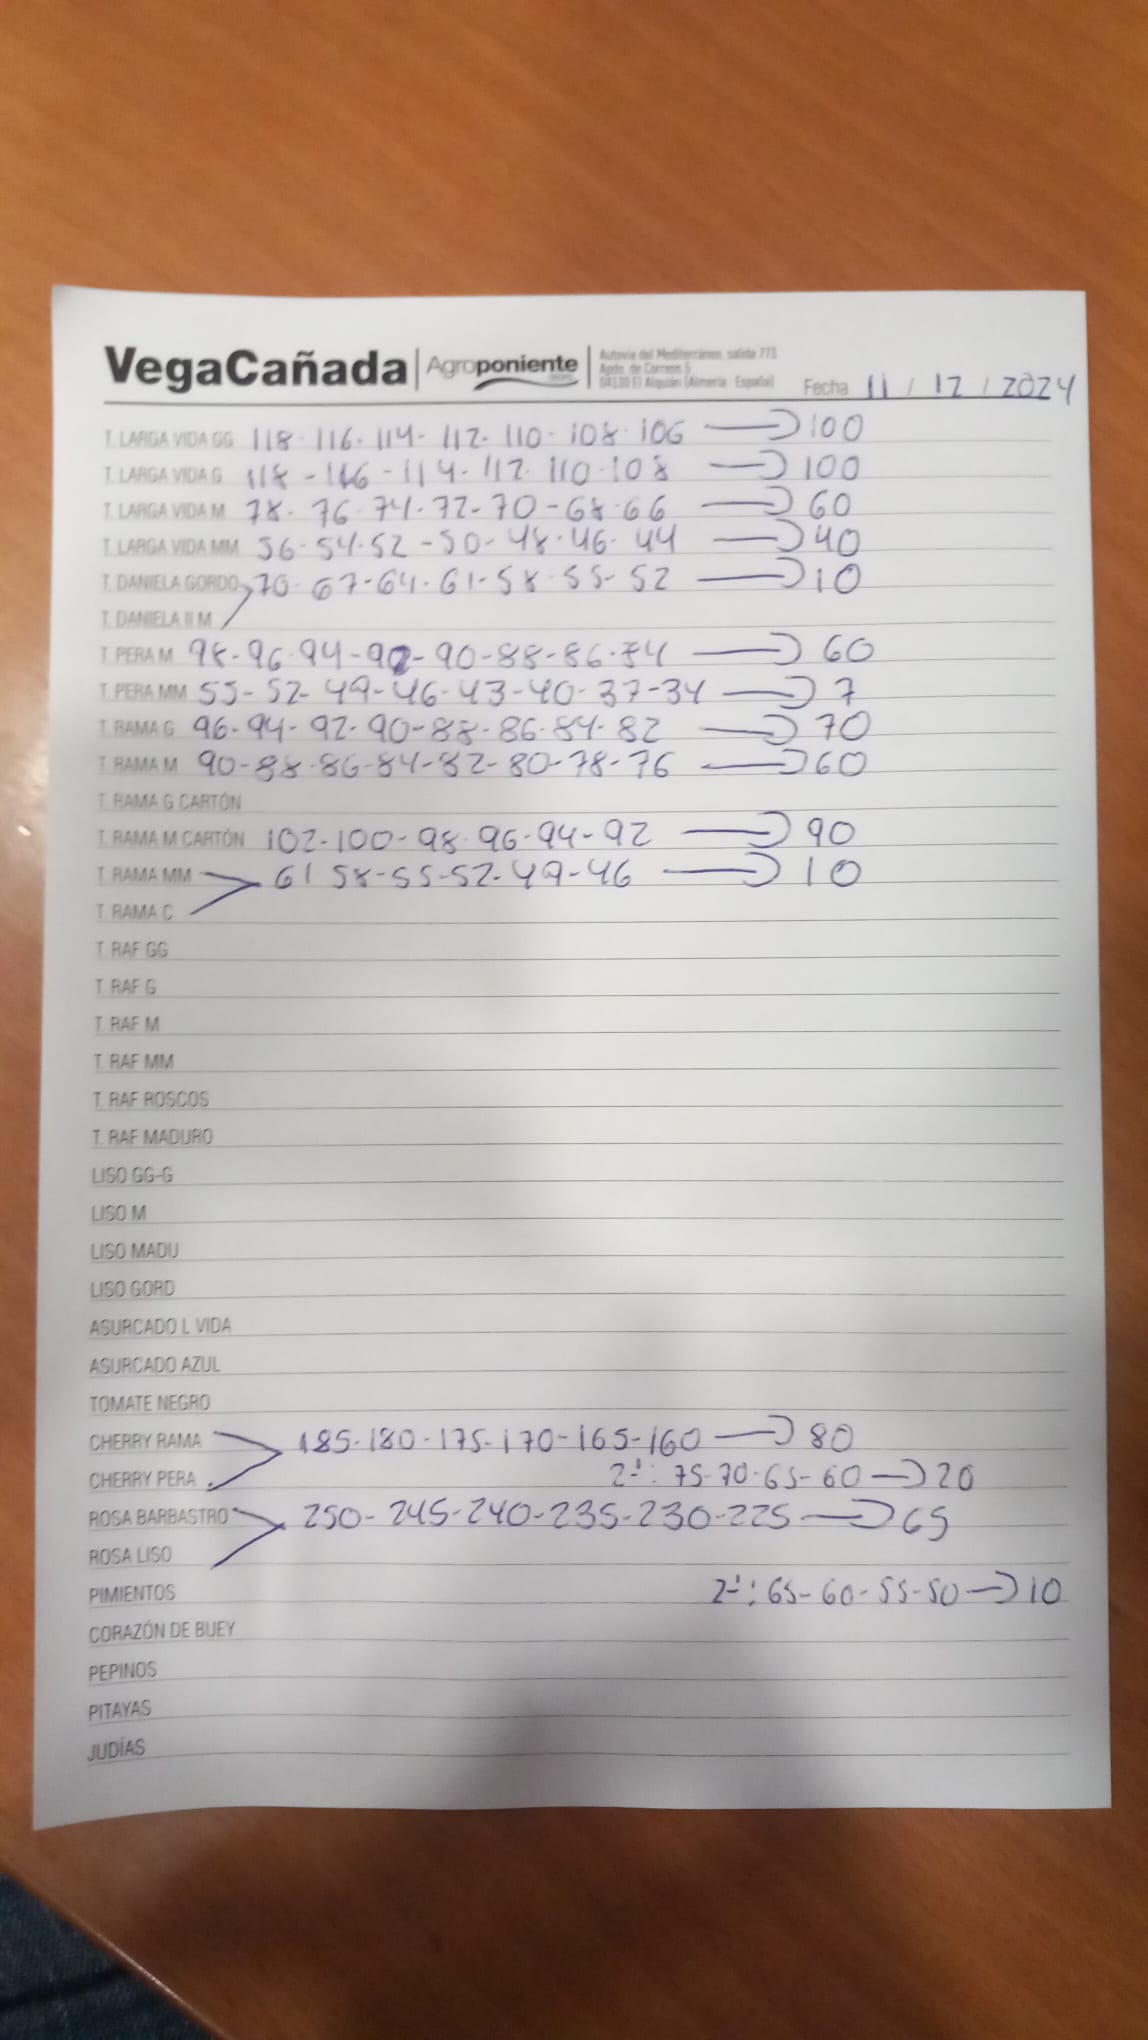 VegaCañada | Agroponiente
Autovía del Mediterráneo, salida 773
Apdo. de Correos 5
04130 El Alquián (Almería · España)
Fecha 11 / 12 / 2024
T. LARGA VIDA GG 118 - 116 - 114 - 112 - 110 - 108 - 106 → 100
T. LARGA VIDA G 118 - 116 - 114 - 112 - 110 - 108 → 100
T. LARGA VIDA M 78 - 76 - 74 - 72 - 70 - 68 - 66 → 60
T. LARGA VIDA MM 56 - 54 - 52 - 50 - 48 - 46 - 44 → 40
T. DANIELA GORDO 70 - 67 - 64 - 61 - 58 - 55 - 52 → 10
T. DANIELA II M
T. PERA M 98 - 96 - 94 - 92 - 90 - 88 - 86 - 84 → 60
T. PERA MM 55 - 52 - 49 - 46 - 43 - 40 - 37 - 34 → 7
T. RAMA G 96 - 94 - 92 - 90 - 88 - 86 - 84 - 82 → 70
T. RAMA M 90 - 88 - 86 - 84 - 82 - 80 - 78 - 76 → 60
T. RAMA G CARTÓN
T. RAMA M CARTÓN 102 - 100 - 98 - 96 - 94 - 92 → 90
T. RAMA MM 61 58 - 55 - 52 - 49 - 46 → 10
T. RAMA C
T. RAF GG
T. RAF G
T. RAF M
T. RAF MM
T. RAF ROSCOS
T. RAF MADURO
LISO GG-G
LISO M
LISO MADU
LISO GORD
ASURCADO L VIDA
ASURCADO AZUL
TOMATE NEGRO
CHERRY RAMA 185 - 180 - 175 - 170 - 165 - 160 → 80
CHERRY PERA 2ª: 75 - 70 - 65 - 60 → 20
ROSA BARBASTRO 250 - 245 - 240 - 235 - 230 - 225 → 65
ROSA LISO
PIMIENTOS 2ª: 65 - 60 - 55 - 50 → 10
CORAZÓN DE BUEY
PEPINOS
PITAYAS
JUDÍAS